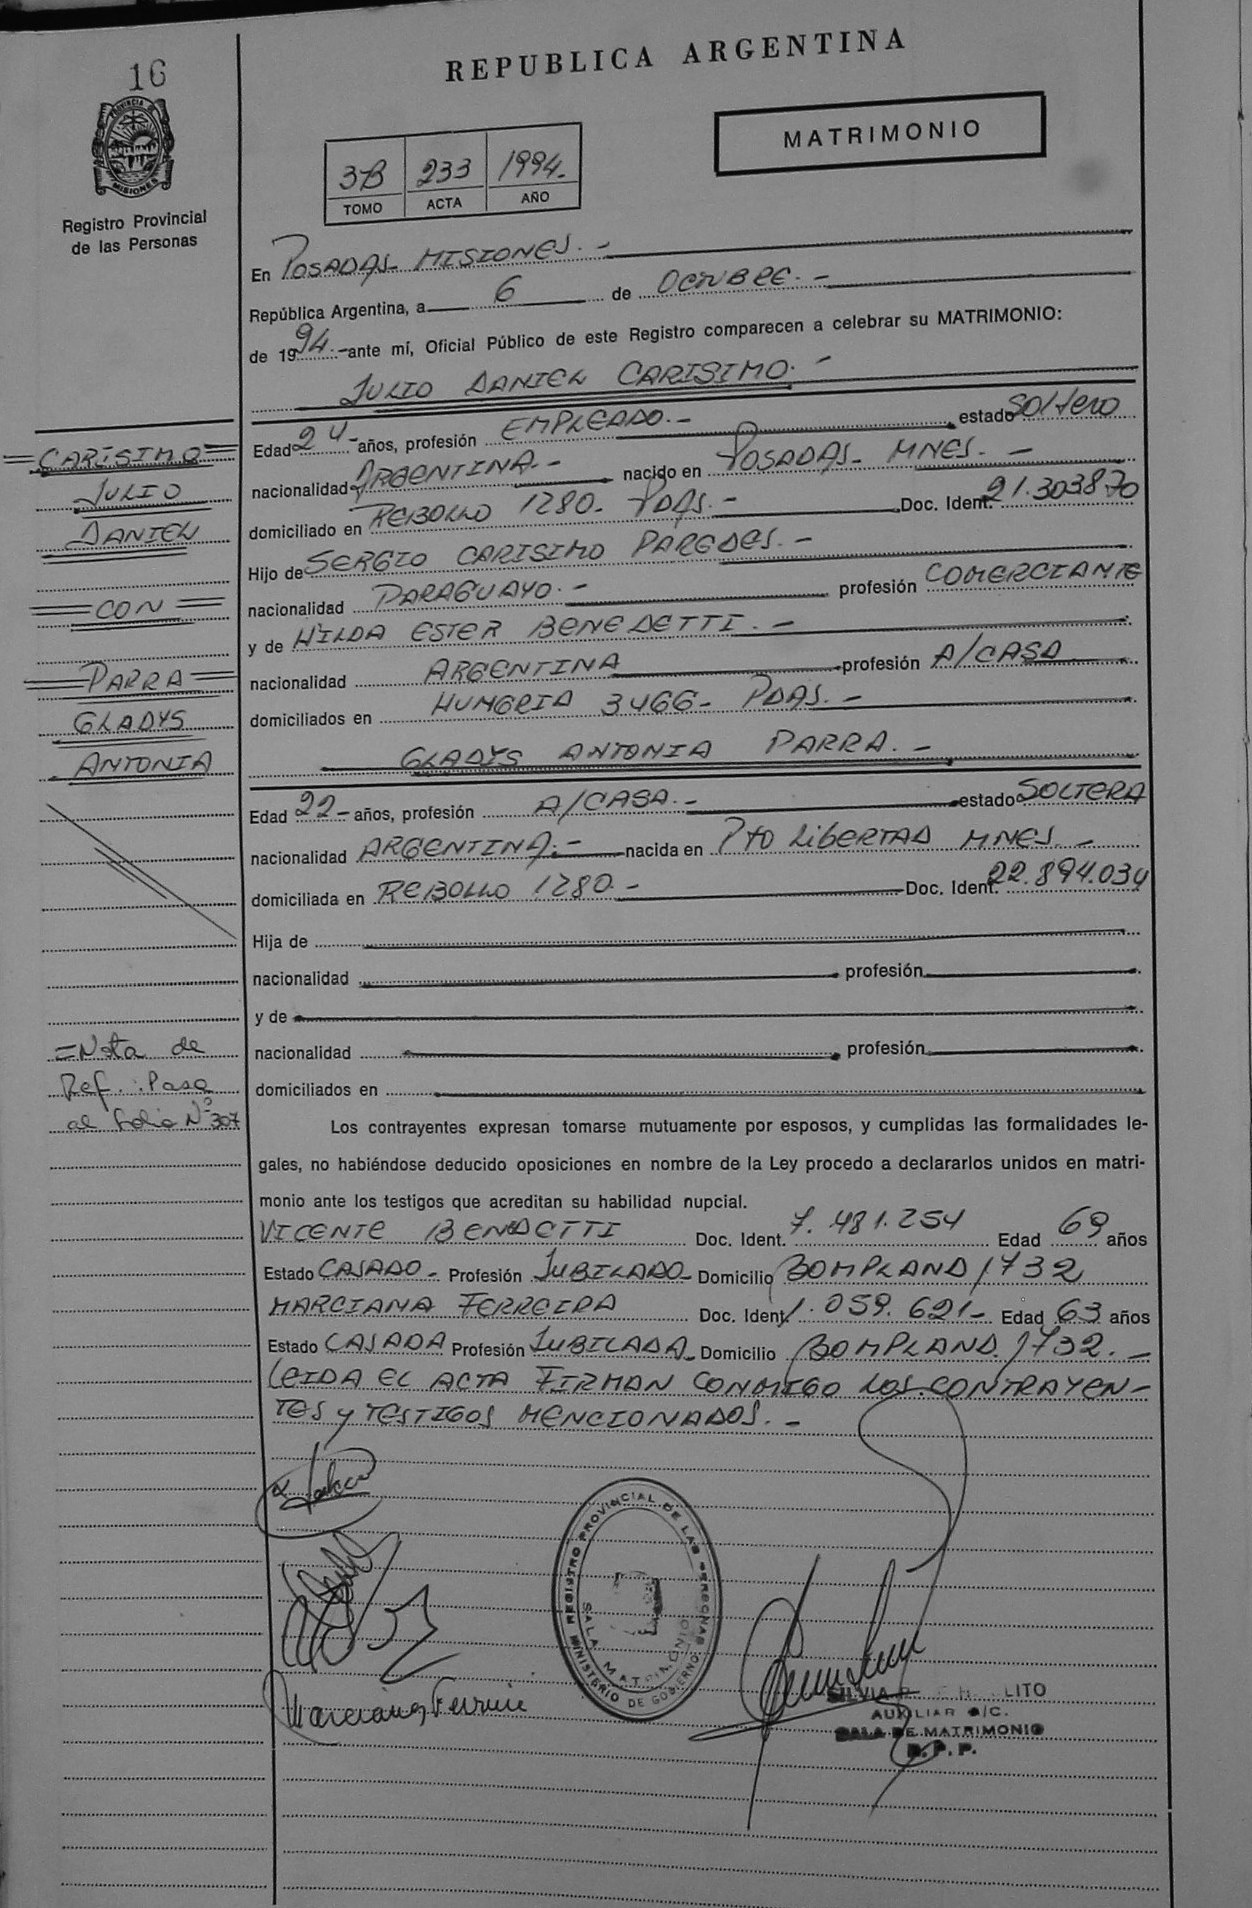 16
PROVINCIA DE
MISIONES
Registro Provincial
de las Personas
REPUBLICA ARGENTINA
MATRIMONIO
3B 233 1994.-
TOMO ACTA AÑO
En POSADAS- MISIONES.-
República Argentina, a 6 de OCTUBRE.-
de 1994.- ante mí, Oficial Público de este Registro comparecen a celebrar su MATRIMONIO:
JULIO DANIEL CARISIMO.-
Edad 24- años, profesión EMPLEADO.- estado SOLTERO
nacionalidad ARGENTINA.- nacido en POSADAS- MNES.-
domiciliado en REBOLLO 1280- PDAS.- Doc. Ident. 21.303870
Hijo de SERGIO CARISIMO PAREDES.-
nacionalidad PARAGUAYO.- profesión COMERCIANTE
y de HILDA ESTER BENEDETTI.-
nacionalidad ARGENTINA profesión A/CASA
domiciliados en HUNGRIA 3466- PDAS.-
GLADYS ANTONIA PARRA.-
Edad 22- años, profesión A/CASA.- estado SOLTERA
nacionalidad ARGENTINA.- nacida en Pto LIBERTAD MNES.-
domiciliada en REBOLLO 1280.- Doc. Ident. 22.894.034
Hija de
nacionalidad profesión
y de
nacionalidad profesión
domiciliados en
CARISIMO
JULIO
DANIEL
=CON=
PARRA
GLADYS
ANTONIA
=Nota de
Ref.: Pasa
al folio Nº 307
Los contrayentes expresan tomarse mutuamente por esposos, y cumplidas las formalidades le-
gales, no habiéndose deducido oposiciones en nombre de la Ley procedo a declararlos unidos en matri-
monio ante los testigos que acreditan su habilidad nupcial.
VICENTE BENEDETTI Doc. Ident. 7.481.254 Edad 69 años
Estado CASADO- Profesión JUBILADO- Domicilio BOMPLAND 1732
MARCIANA FERREIRA Doc. Ident. 1.059.621- Edad 63 años
Estado CASADA Profesión JUBILADA- Domicilio BOMPLAND. 1732.-
LEIDA EL ACTA FIRMAN CONMIGO LOS CONTRAYEN-
TES Y TESTIGOS MENCIONADOS.-
REGISTRO PROVINCIAL DE LAS PERSONAS
SALA MATRIMONIO
MINISTERIO DE GOBIERNO
Marciana Ferreira
SILVIA
AUXILIAR A/C.
SALA DE MATRIMONIO
R.P.P.